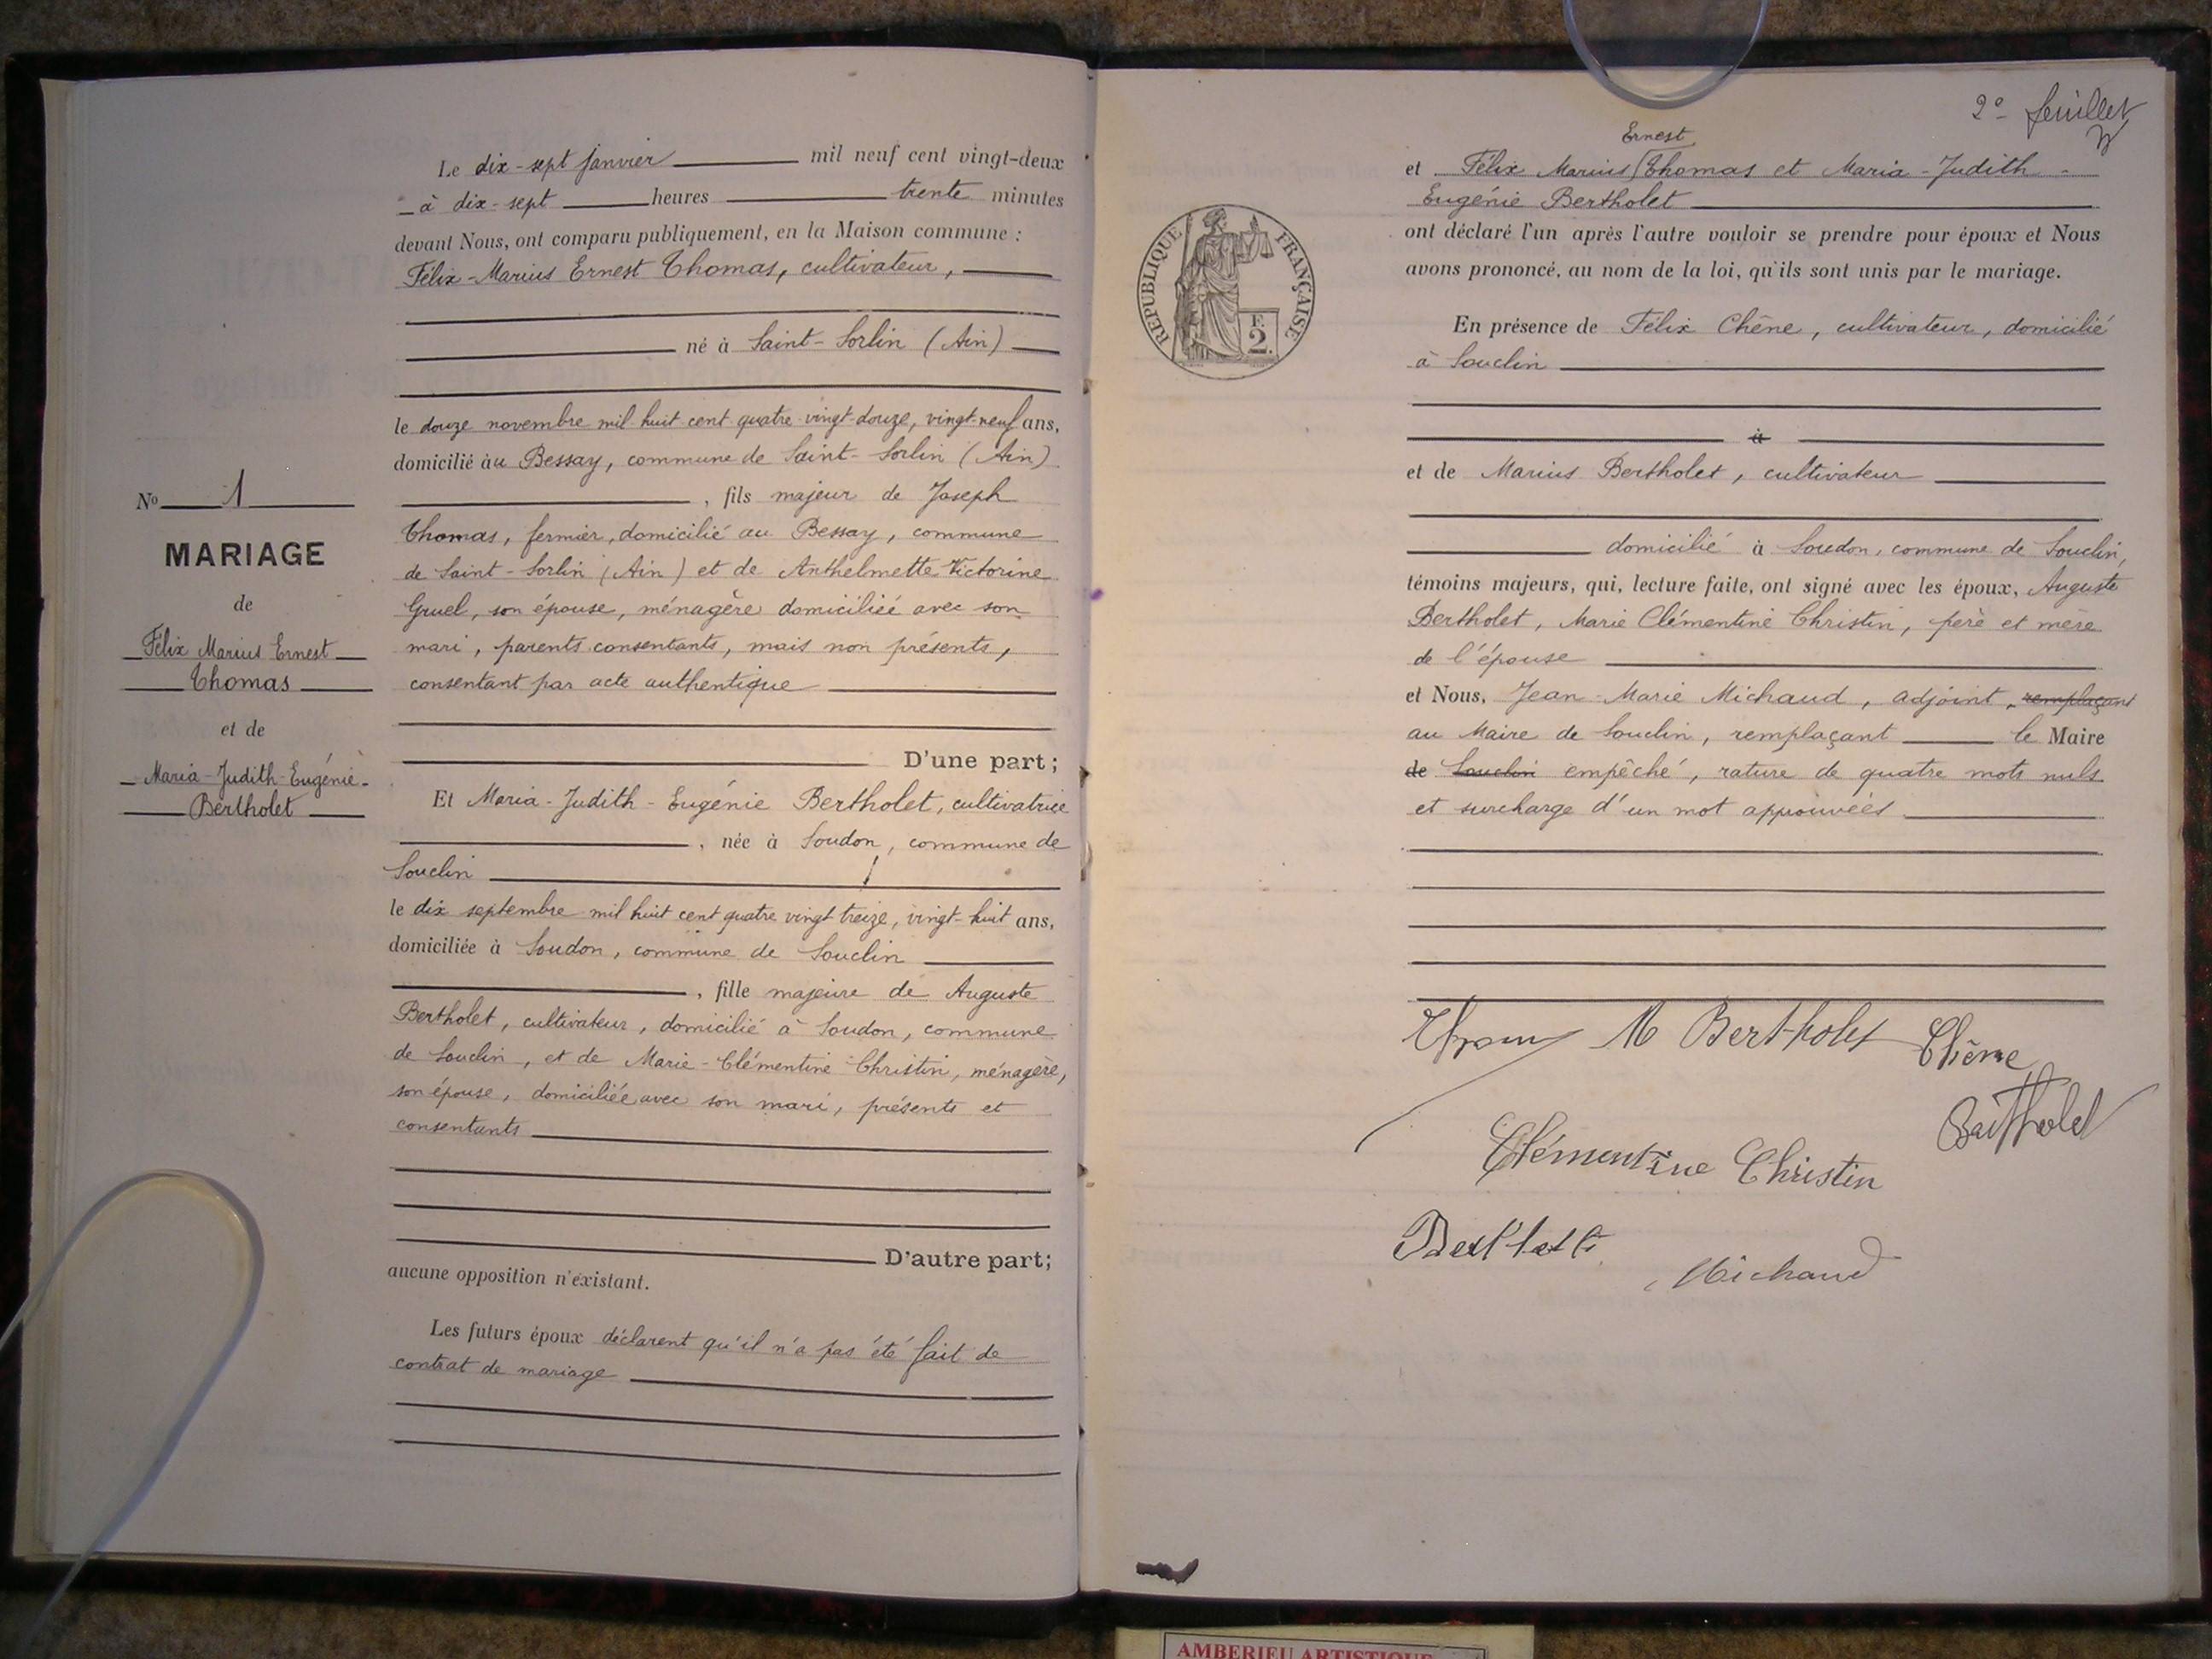 Le dix-sept janvier mil neuf cent vingt-deux
à dix-sept heures trente minutes
devant Nous, ont comparu publiquement, en la Maison commune :
Félix-Marius Ernest Thomas, cultivateur,
né à Saint-Sorlin (Ain)
le douze novembre mil huit cent quatre-vingt-douze, vingt-neuf ans,
domicilié au Bessay, commune de Saint-Sorlin (Ain)
, fils majeur de Joseph
Thomas, fermier, domicilié au Bessay, commune
de Saint-Sorlin (Ain) et de Anthelmette Victorine
Gruel, son épouse, ménagère domiciliée avec son
mari, parents consentants, mais non présents,
consentant par acte authentique
D'une part;
Et Maria-Judith-Eugénie Bertholet, cultivatrice
, née à Soudon, commune de
Souclin
le dix septembre mil huit cent quatre vingt treize, vingt-huit ans,
domiciliée à Soudon, commune de Souclin
, fille majeure de Auguste
Bertholet, cultivateur, domicilié à Soudon, commune
de Souclin, et de Marie-Clémentine Christin, ménagère,
son épouse, domiciliée avec son mari, présents et
consentants
D'autre part;
aucune opposition n'existant.
Les futurs époux déclarent qu'il n'a pas été fait de
contrat de mariage
No 1
MARIAGE
de
Félix Marius Ernest
Thomas
et de
Maria-Judith-Eugénie-
Bertholet
2e feuillet
Ernest
et Félix Marius Thomas et Maria-Judith-
Eugénie Bertholet
ont déclaré l'un après l'autre vouloir se prendre pour époux et Nous
avons prononcé, au nom de la loi, qu'ils sont unis par le mariage.
RÉPUBLIQUE FRANÇAISE
F.
2.
En présence de Félix Chêne, cultivateur, domicilié
à Souclin
à
et de Marius Bertholet, cultivateur
domicilié à Soudon, commune de Souclin,
témoins majeurs, qui, lecture faite, ont signé avec les époux, Auguste
Bertholet, Marie Clémentine Christin, père et mère
de l'épouse
et Nous, Jean-Marie Michaud, adjoint, remplaçant
au Maire de Souclin, remplaçant le Maire
de Souclin empêché, rature de quatre mots nuls
et surcharge d'un mot approuvées
Thomas M Bertholet Chêne
Bertholet
Clémentine Christin
Michaud
AMBERIEU ARTISTIQUE